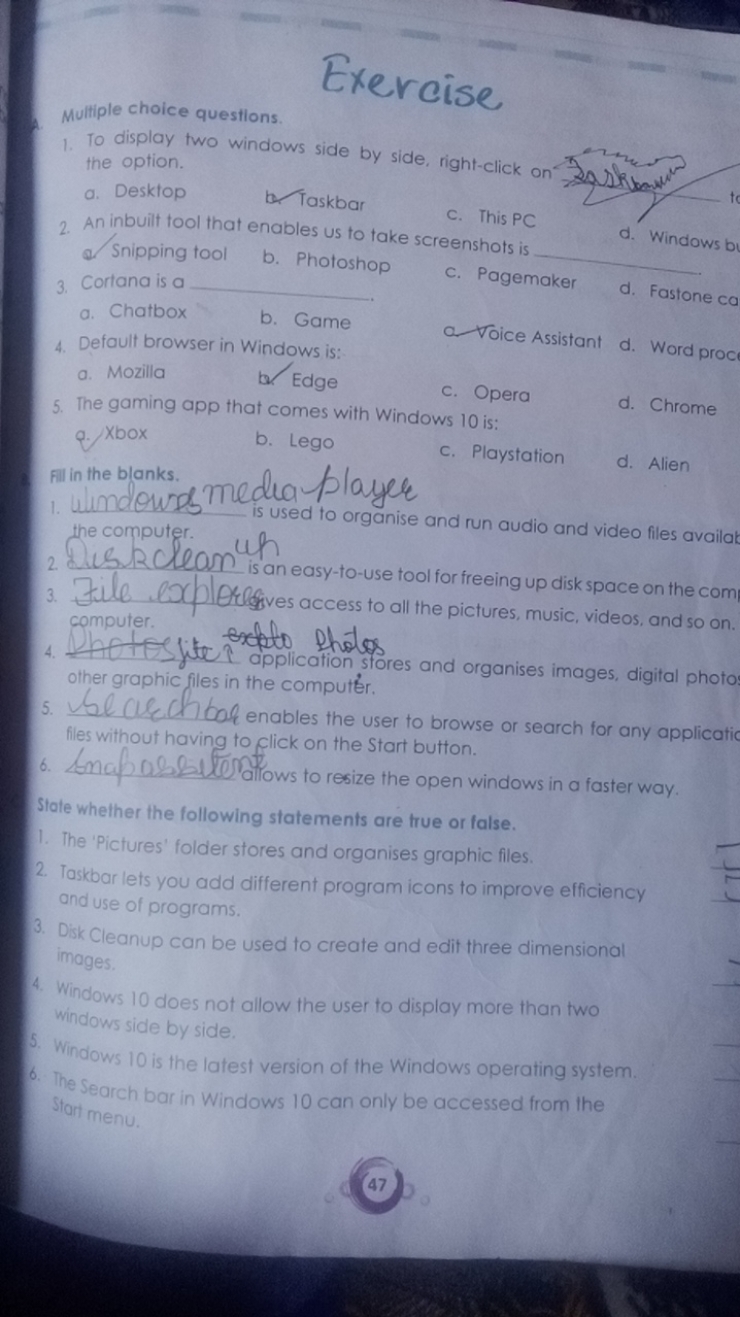 Exercise
A. Multiple choice questions.
1. To display two windows side by side, right-click on Taskbar
the option.
a. Desktop b. Taskbar c. This PC d. Windows bu
2. An inbuilt tool that enables us to take screenshots is
a. Snipping tool b. Photoshop c. Pagemaker d. Fastone ca
3. Cortana is a .
a. Chatbox b. Game c. Voice Assistant d. Word proce
4. Default browser in Windows is:
a. Mozilla b. Edge c. Opera d. Chrome
5. The gaming app that comes with Windows 10 is:
a. Xbox b. Lego c. Playstation d. Alien
Fill in the blanks.
1. Windows media player is used to organise and run audio and video files availab
the computer.
2. Disk clean up is an easy-to-use tool for freeing up disk space on the comp
3. File explorer gives access to all the pictures, music, videos, and so on.
computer.
4. Photos Photos application stores and organises images, digital photos
other graphic files in the computer.
5. Search bar enables the user to browse or search for any applicatio
files without having to click on the Start button.
6. Snap assitent allows to resize the open windows in a faster way.
State whether the following statements are true or false.
1. The 'Pictures' folder stores and organises graphic files.
2. Taskbar lets you add different program icons to improve efficiency
and use of programs.
3. Disk Cleanup can be used to create and edit three dimensional
images.
4. Windows 10 does not allow the user to display more than two
windows side by side.
5. Windows 10 is the latest version of the Windows operating system.
6. The Search bar in Windows 10 can only be accessed from the
Start menu.
47